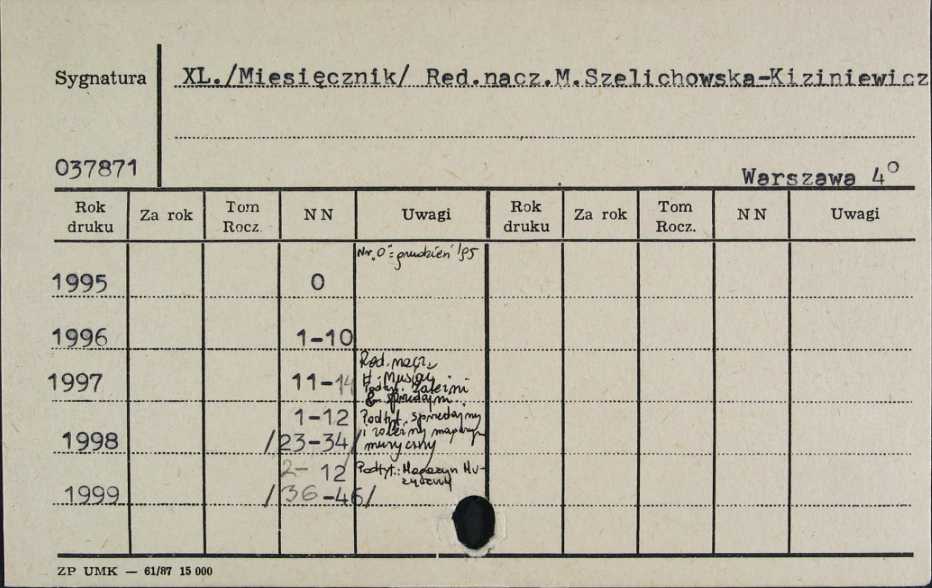 Sygnatura
XL./Miesięcznik/ Red.nacz.M.Szelichowska-Kiziniewicz
037871
Warszawa 4°
Rok druku Za rok Tom Rocz. NN Uwagi Rok druku Za rok Tom Rocz. NN Uwagi
Nr „0”= grudzień '95
1995 0
1996 1-10
Red. nacz.
1997 11-14 H. Musiał
Podtyt. zależni
& sprzedajni
1-12 Podtyt. sprzedajny
1998 /23-34/ i zależny magazyn
muzyczny
2- 12 Podtyt.: Magazyn Mu-
zyczny
1999 /36-46/
ZP UMK — 61/87 15 000